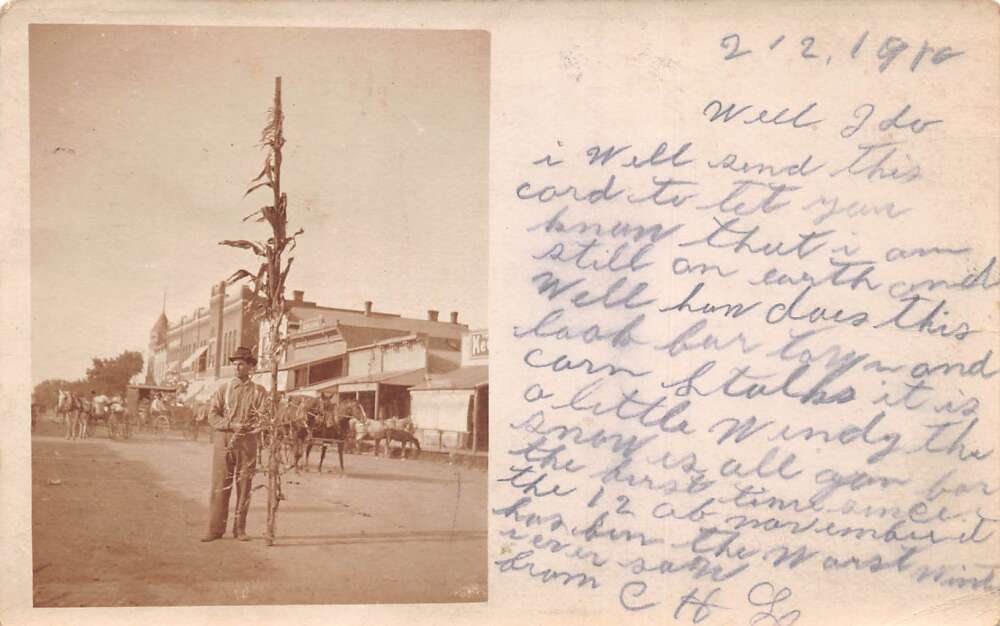 2 12, 1910
Well I do
i Well send this
cord to let you
know that i am
still on earth and
Well how does this
look for Corn and
corn Stalks it is
a little Windy the
snow is all gon for
the first time since
the 12 of november it
has ben the Worst Wint
i ever saw
from C H L
Ke